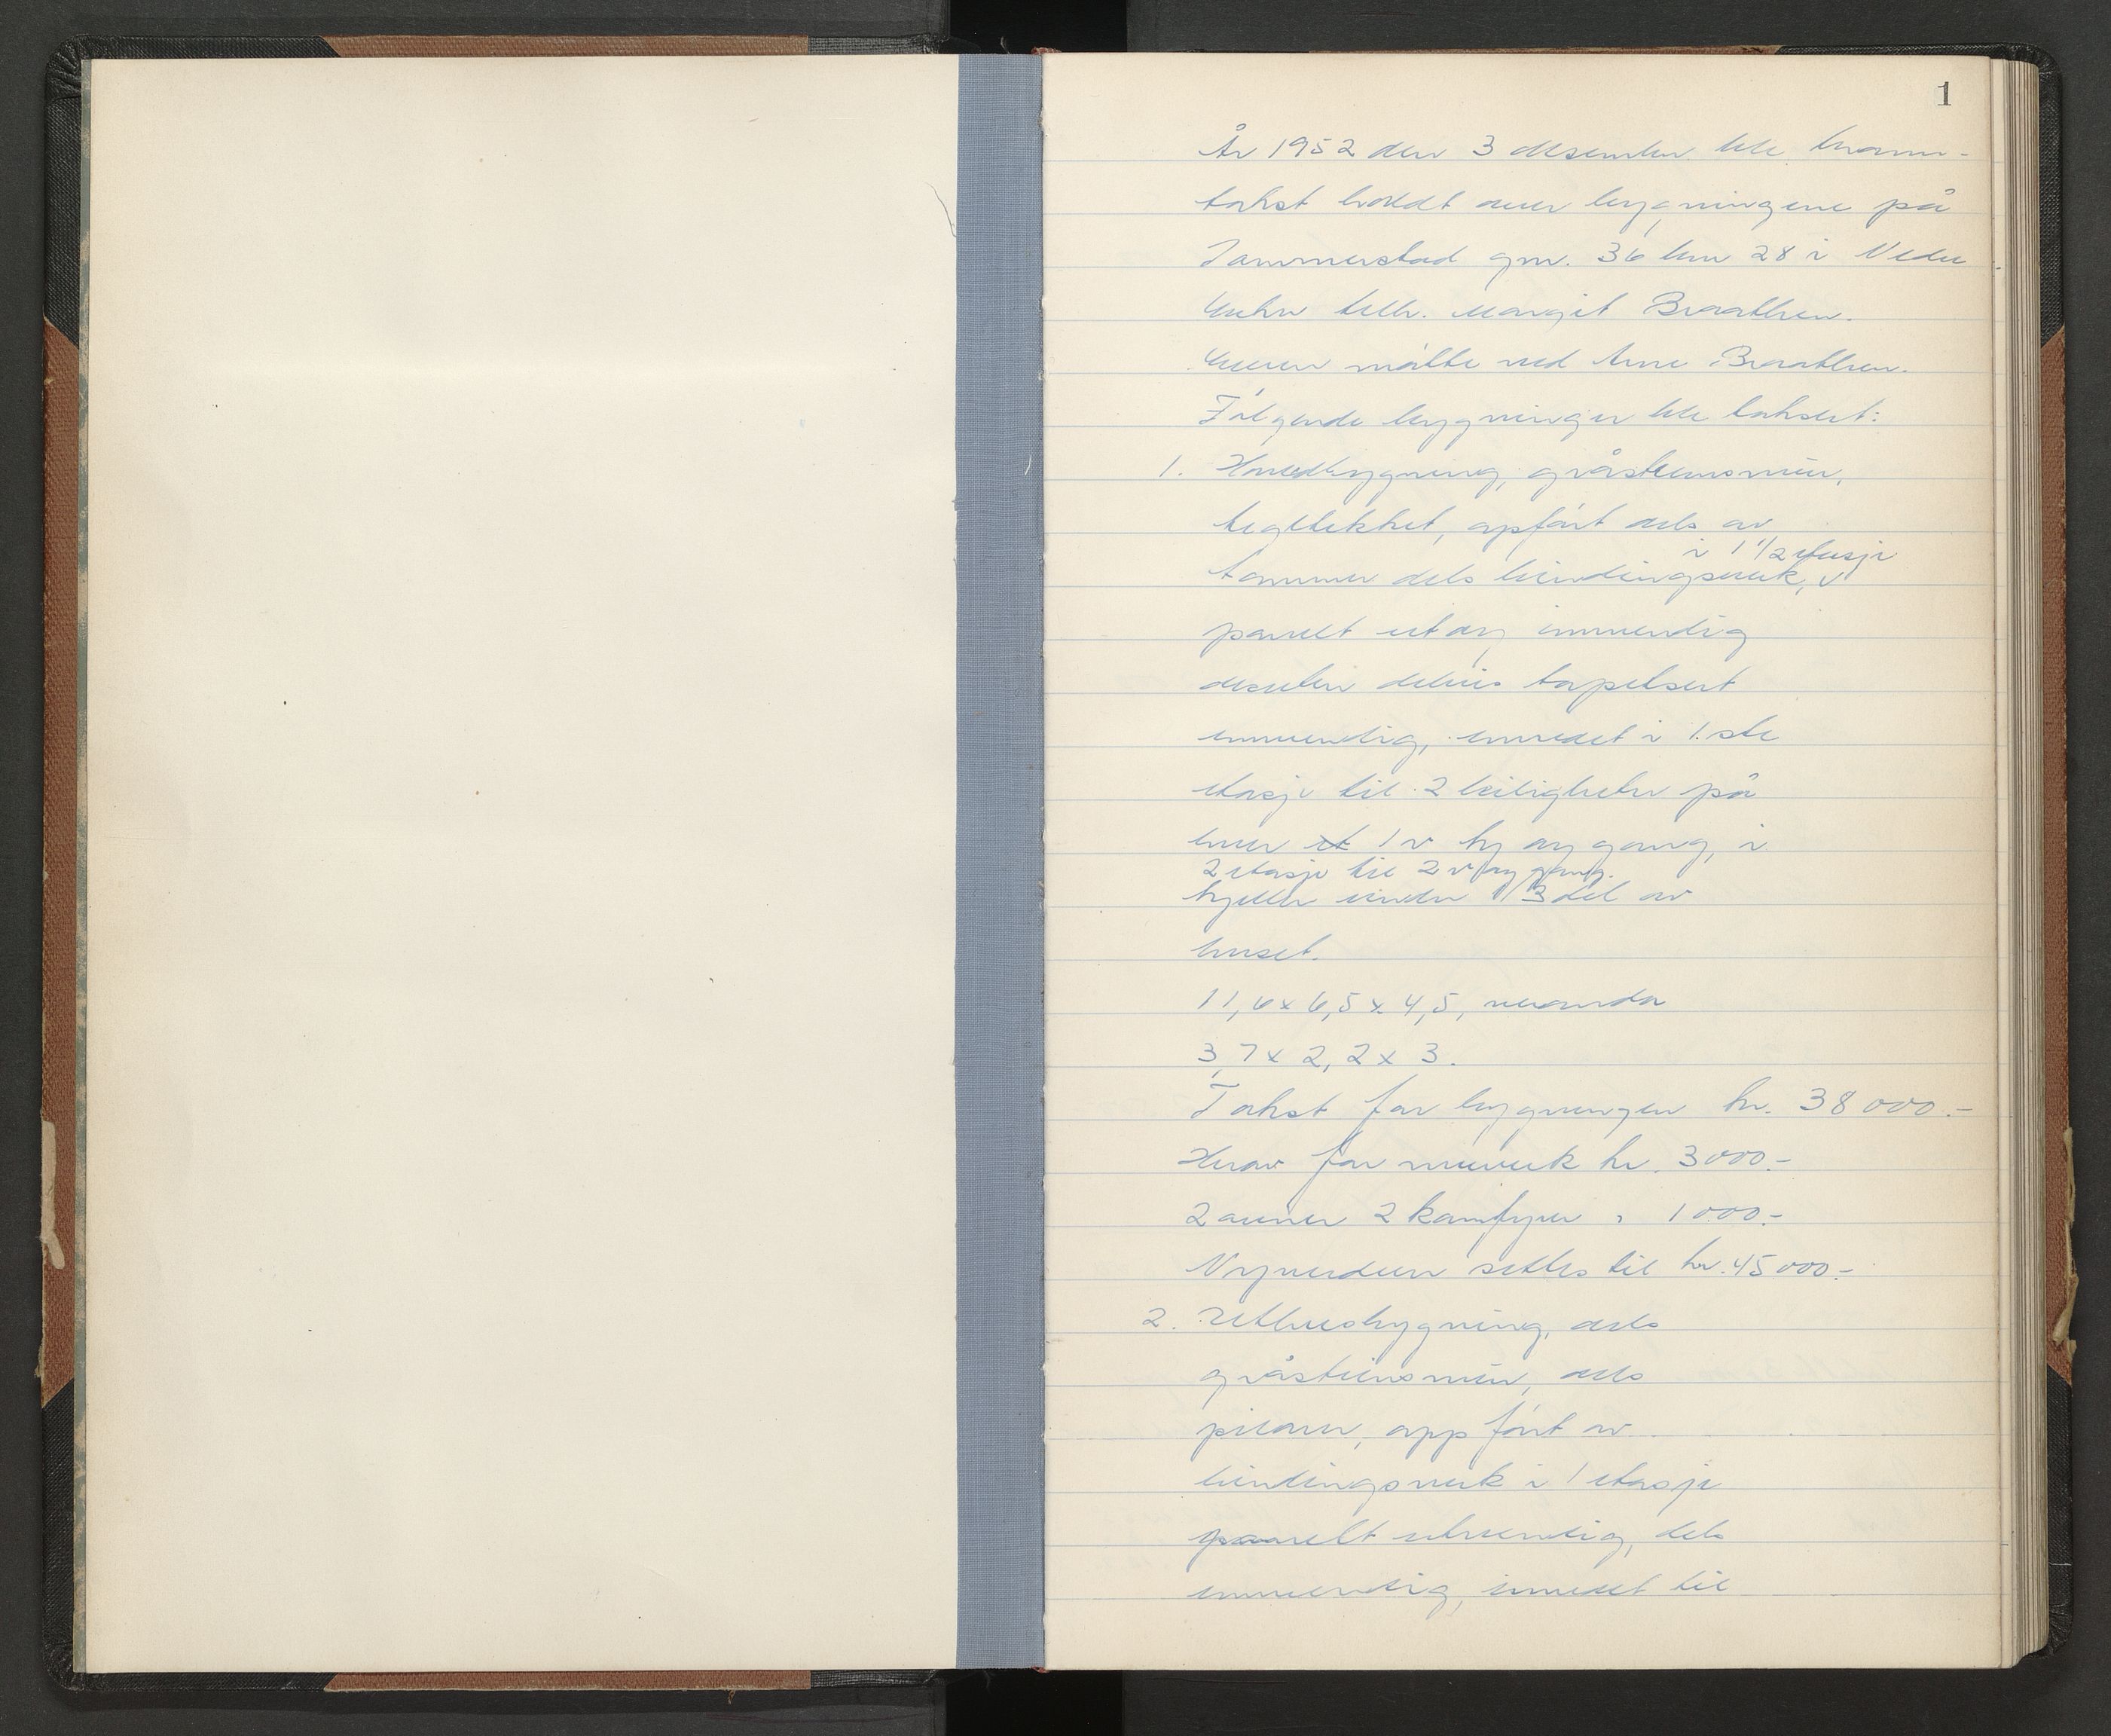 1
År 1952 den 3 desember ble brann-
takst holdt over bygningene på
Jammerstad gnr. 36 bnr 28 i Nedre
Eiker tilh. Margit Braathen.
Eieren møtte ved Arne Braathen.
Følgende bygninger ble taksert:
1. Hovedbygning, gråsteinsmur,
tegltekket, opført dels av
i 1 1/2 etasje
tømmer dels bindingsverk,
panelt ut og innvendig
dessuten delvis tapetsert
innvendig, innredet i 1. ste
etasje til 2 leiligheter på
hver et 1 v kj og gang, i
2 etasje til 2 v og gang.
kjeller under 1/3 del av
huset.
11,6 x 6,5 x 4,5, veranda
3,7 x 2,2 x 3.
Takst for bygningen kr. 38 000.-
Herav for murverk kr. 3000.-
2 ovner 2 komfyrer " 1000.-
Nyverdien settes til kr. 45 000.-
2. Uthusbygning, dels
gråsteinsmur, dels
pilarer, oppført av
bindingsverk i 1 etasje
panelt utvendig, dels
innvendig, innredet til